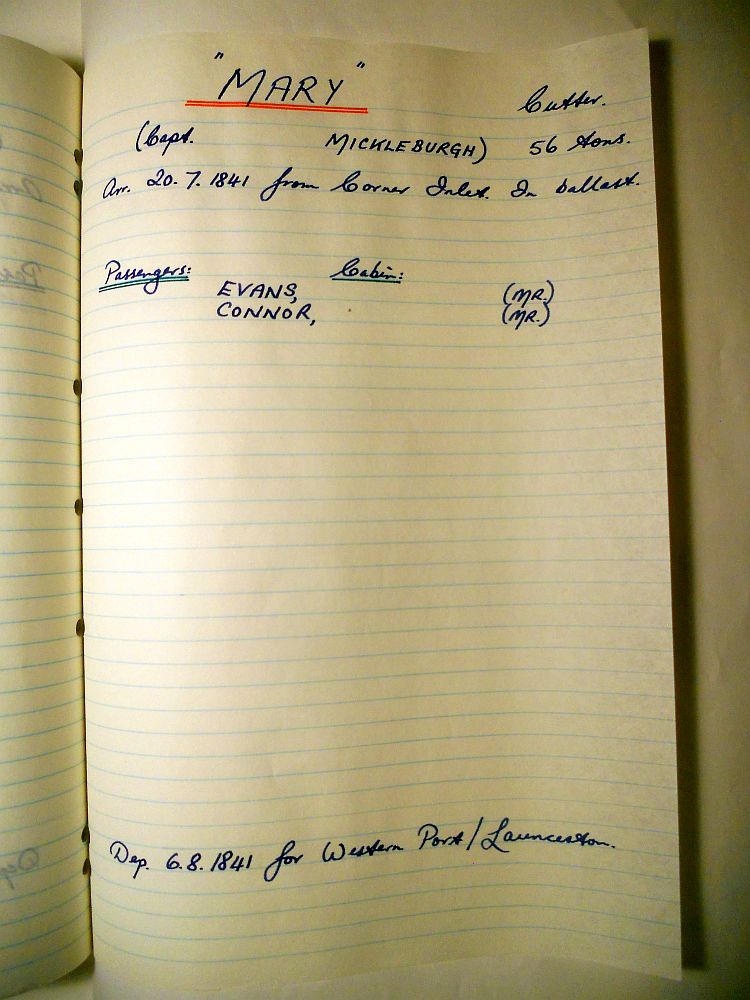 "MARY"
Cutter.
(Capt. MICKLEBURGH) 56 tons.
Arr. 20.7.1841 from Corner Inlet. In ballast.
Passengers: Cabin:
EVANS, (MR.)
CONNOR, (MR.)
Dep. 6.8.1841 for Western Port/Launceston.